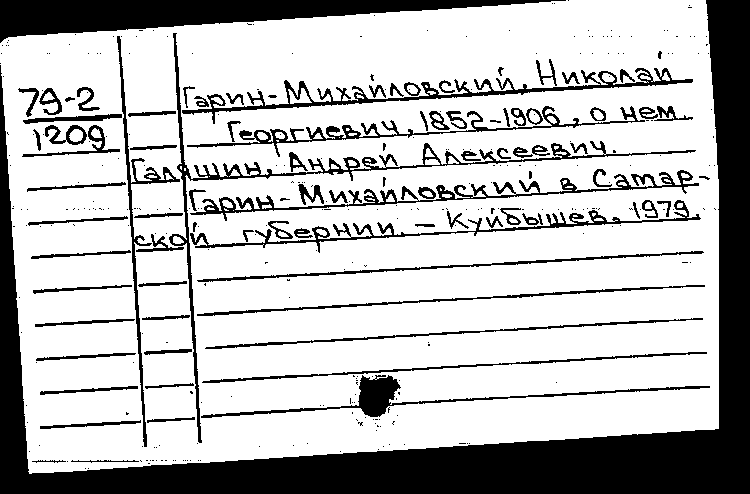 79-2
1209
Гарин-Михайловский, Николай
Георгиевич, 1852-1906, о нем.
Галяшин, Андрей Алексеевич.
Гарин-Михайловский в Самар-
ской губернии. - Куйбышев, 1979.